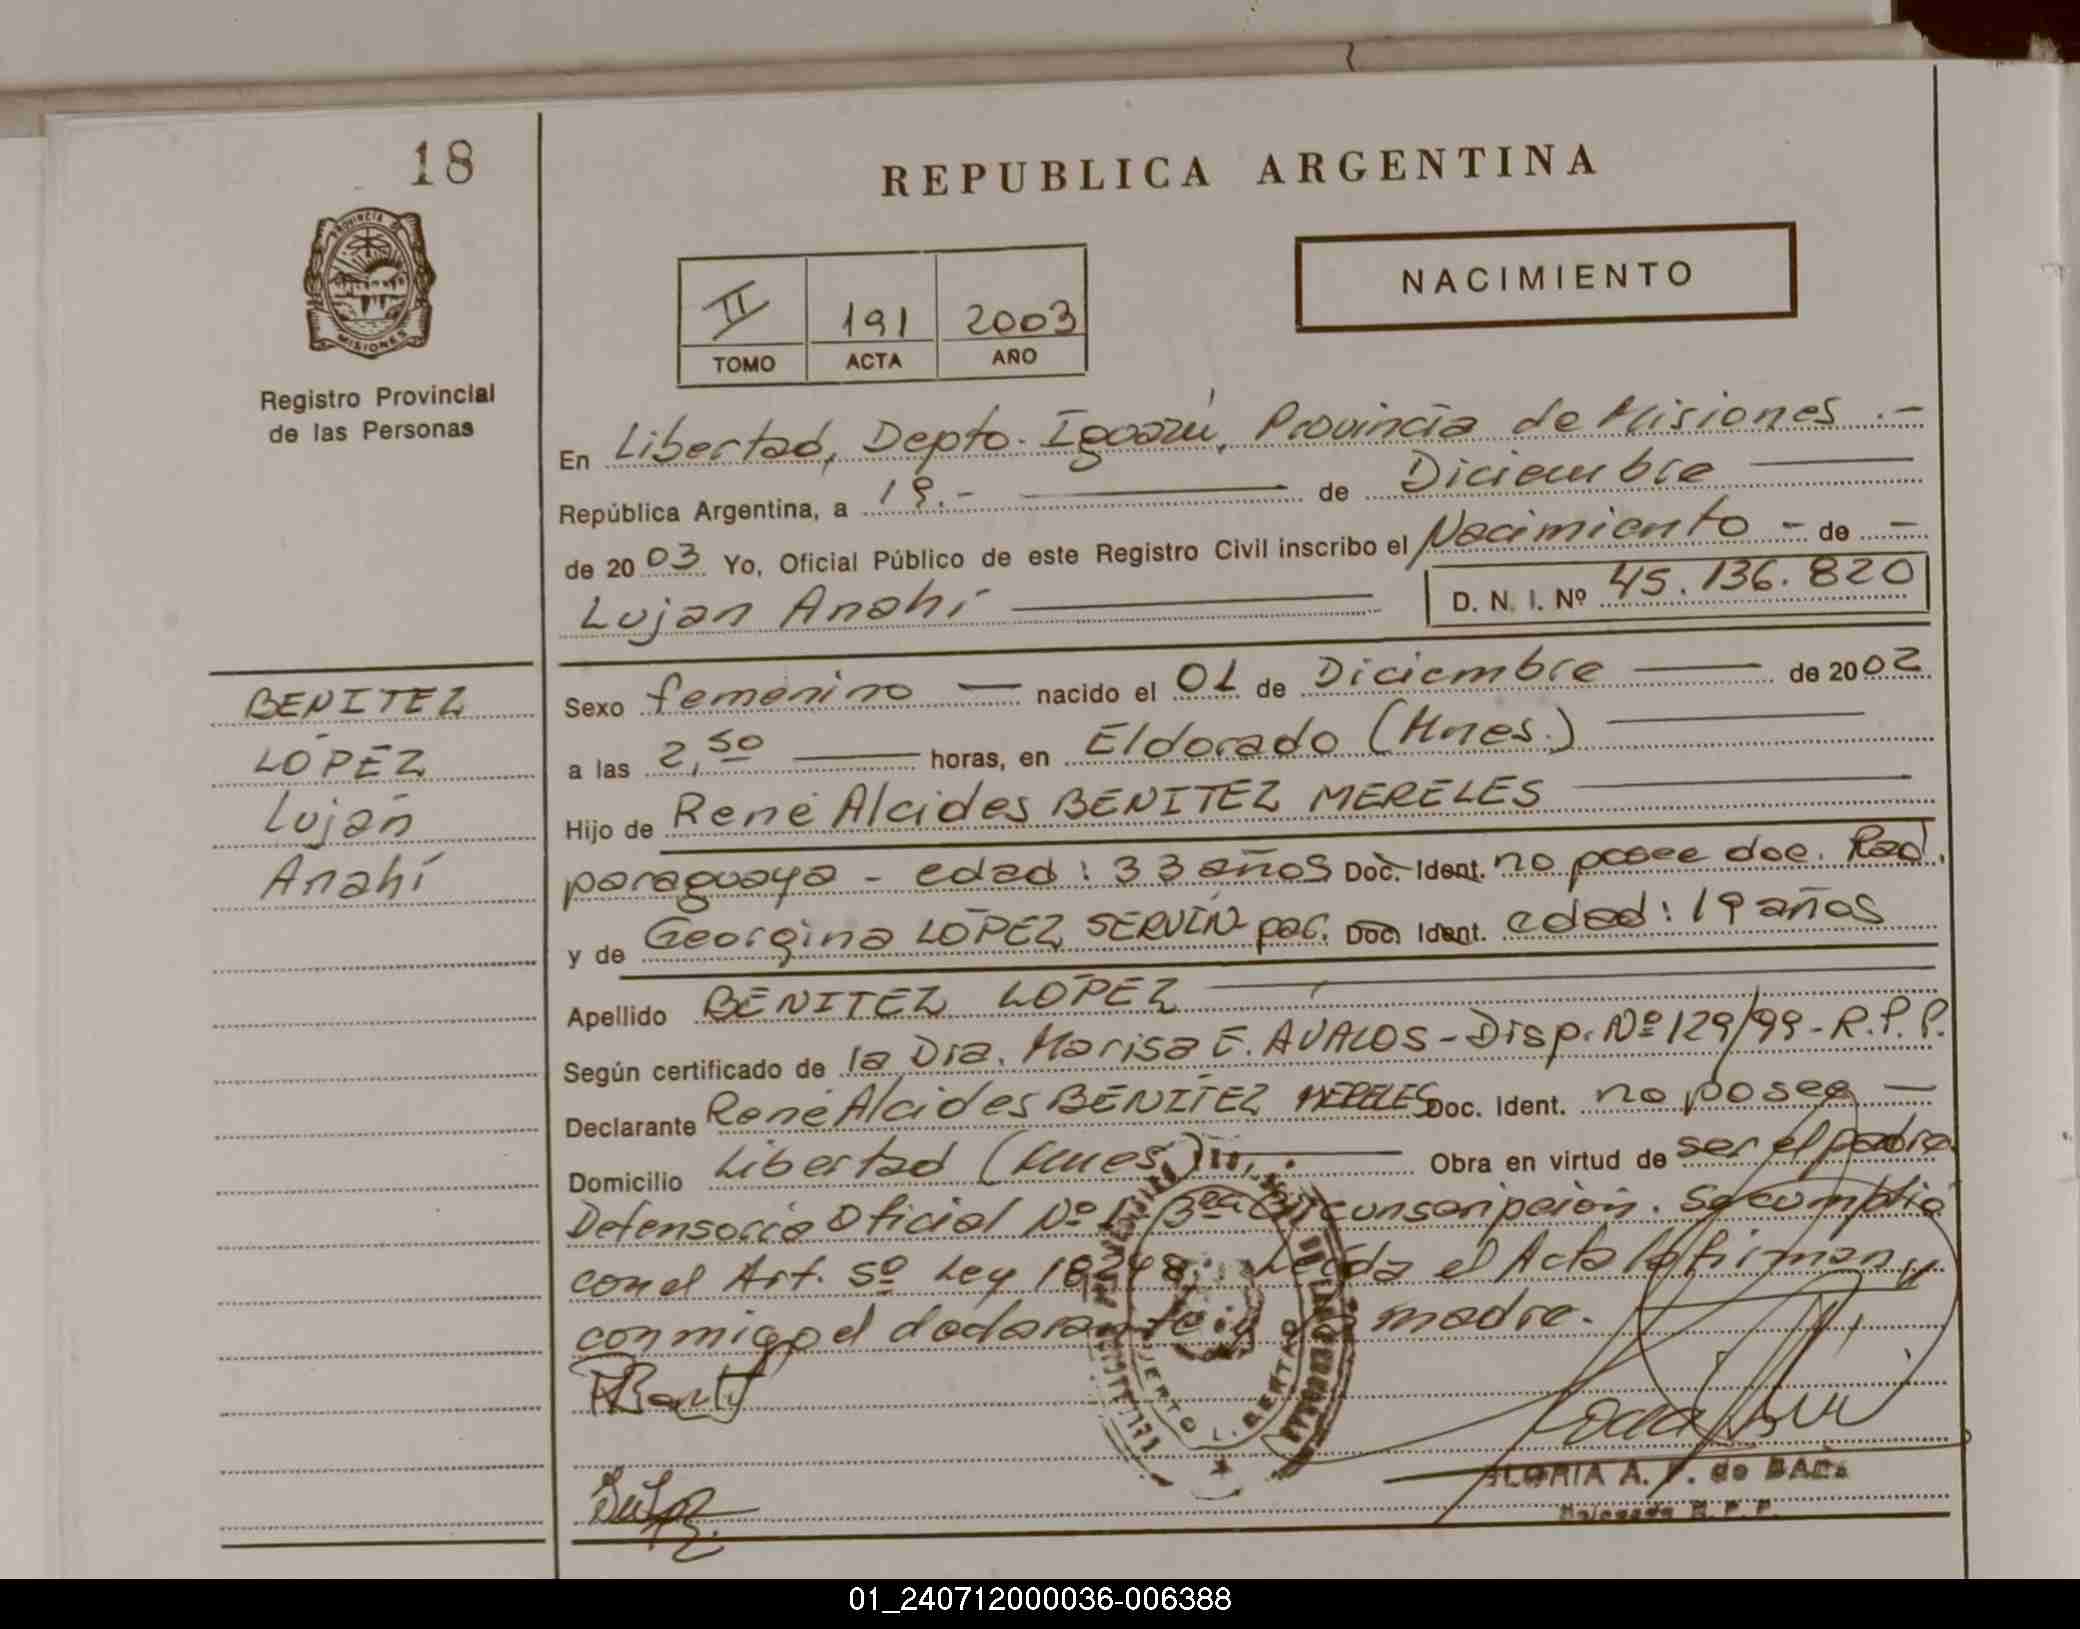 18
REPUBLICA ARGENTINA
NACIMIENTO
II 191 2003
TOMO ACTA AÑO
PROVINCIA
MISIONES
Registro Provincial
de las Personas
En Libertad, Depto. Iguazú, Provincia de Misiones.-
República Argentina, a 19.- de Diciembre
de 2003 Yo, Oficial Público de este Registro Civil inscribo el Nacimiento - de -
Lujan Anahí D. N. I. Nº 45.136.820
Sexo femenino nacido el 01 de Diciembre de 2002
a las 2,50 horas, en Eldorado (Mnes.)
Hijo de René Alcides BENITEZ MERELES
paraguaya - edad: 33 años Doc. Ident. no posee doc. Rad.
y de Georgina LÓPEZ SERVÍN par. Doc. Ident. edad: 19 años
Apellido BENITEZ LOPEZ
Según certificado de la Dra. Marisa E. AVALOS - Disp. Nº 129/99 - R.P.P.
Declarante René Alcides BENITEZ MERELES Doc. Ident. no posee
Domicilio Libertad (Mnes.) Obra en virtud de ser el padre
Defensoría Oficial Nº 1 3ra Circunscripción. Se cumplió
con el Art. 5º Ley 18248. Leída el Acta la firman
conmigo el declarante y la madre.
BENITEZ
LÓPEZ
Luján
Anahí
PUERTO LIBERTAD
GLORIA A. de
Delegada R. P. P.
01_240712000036-006388